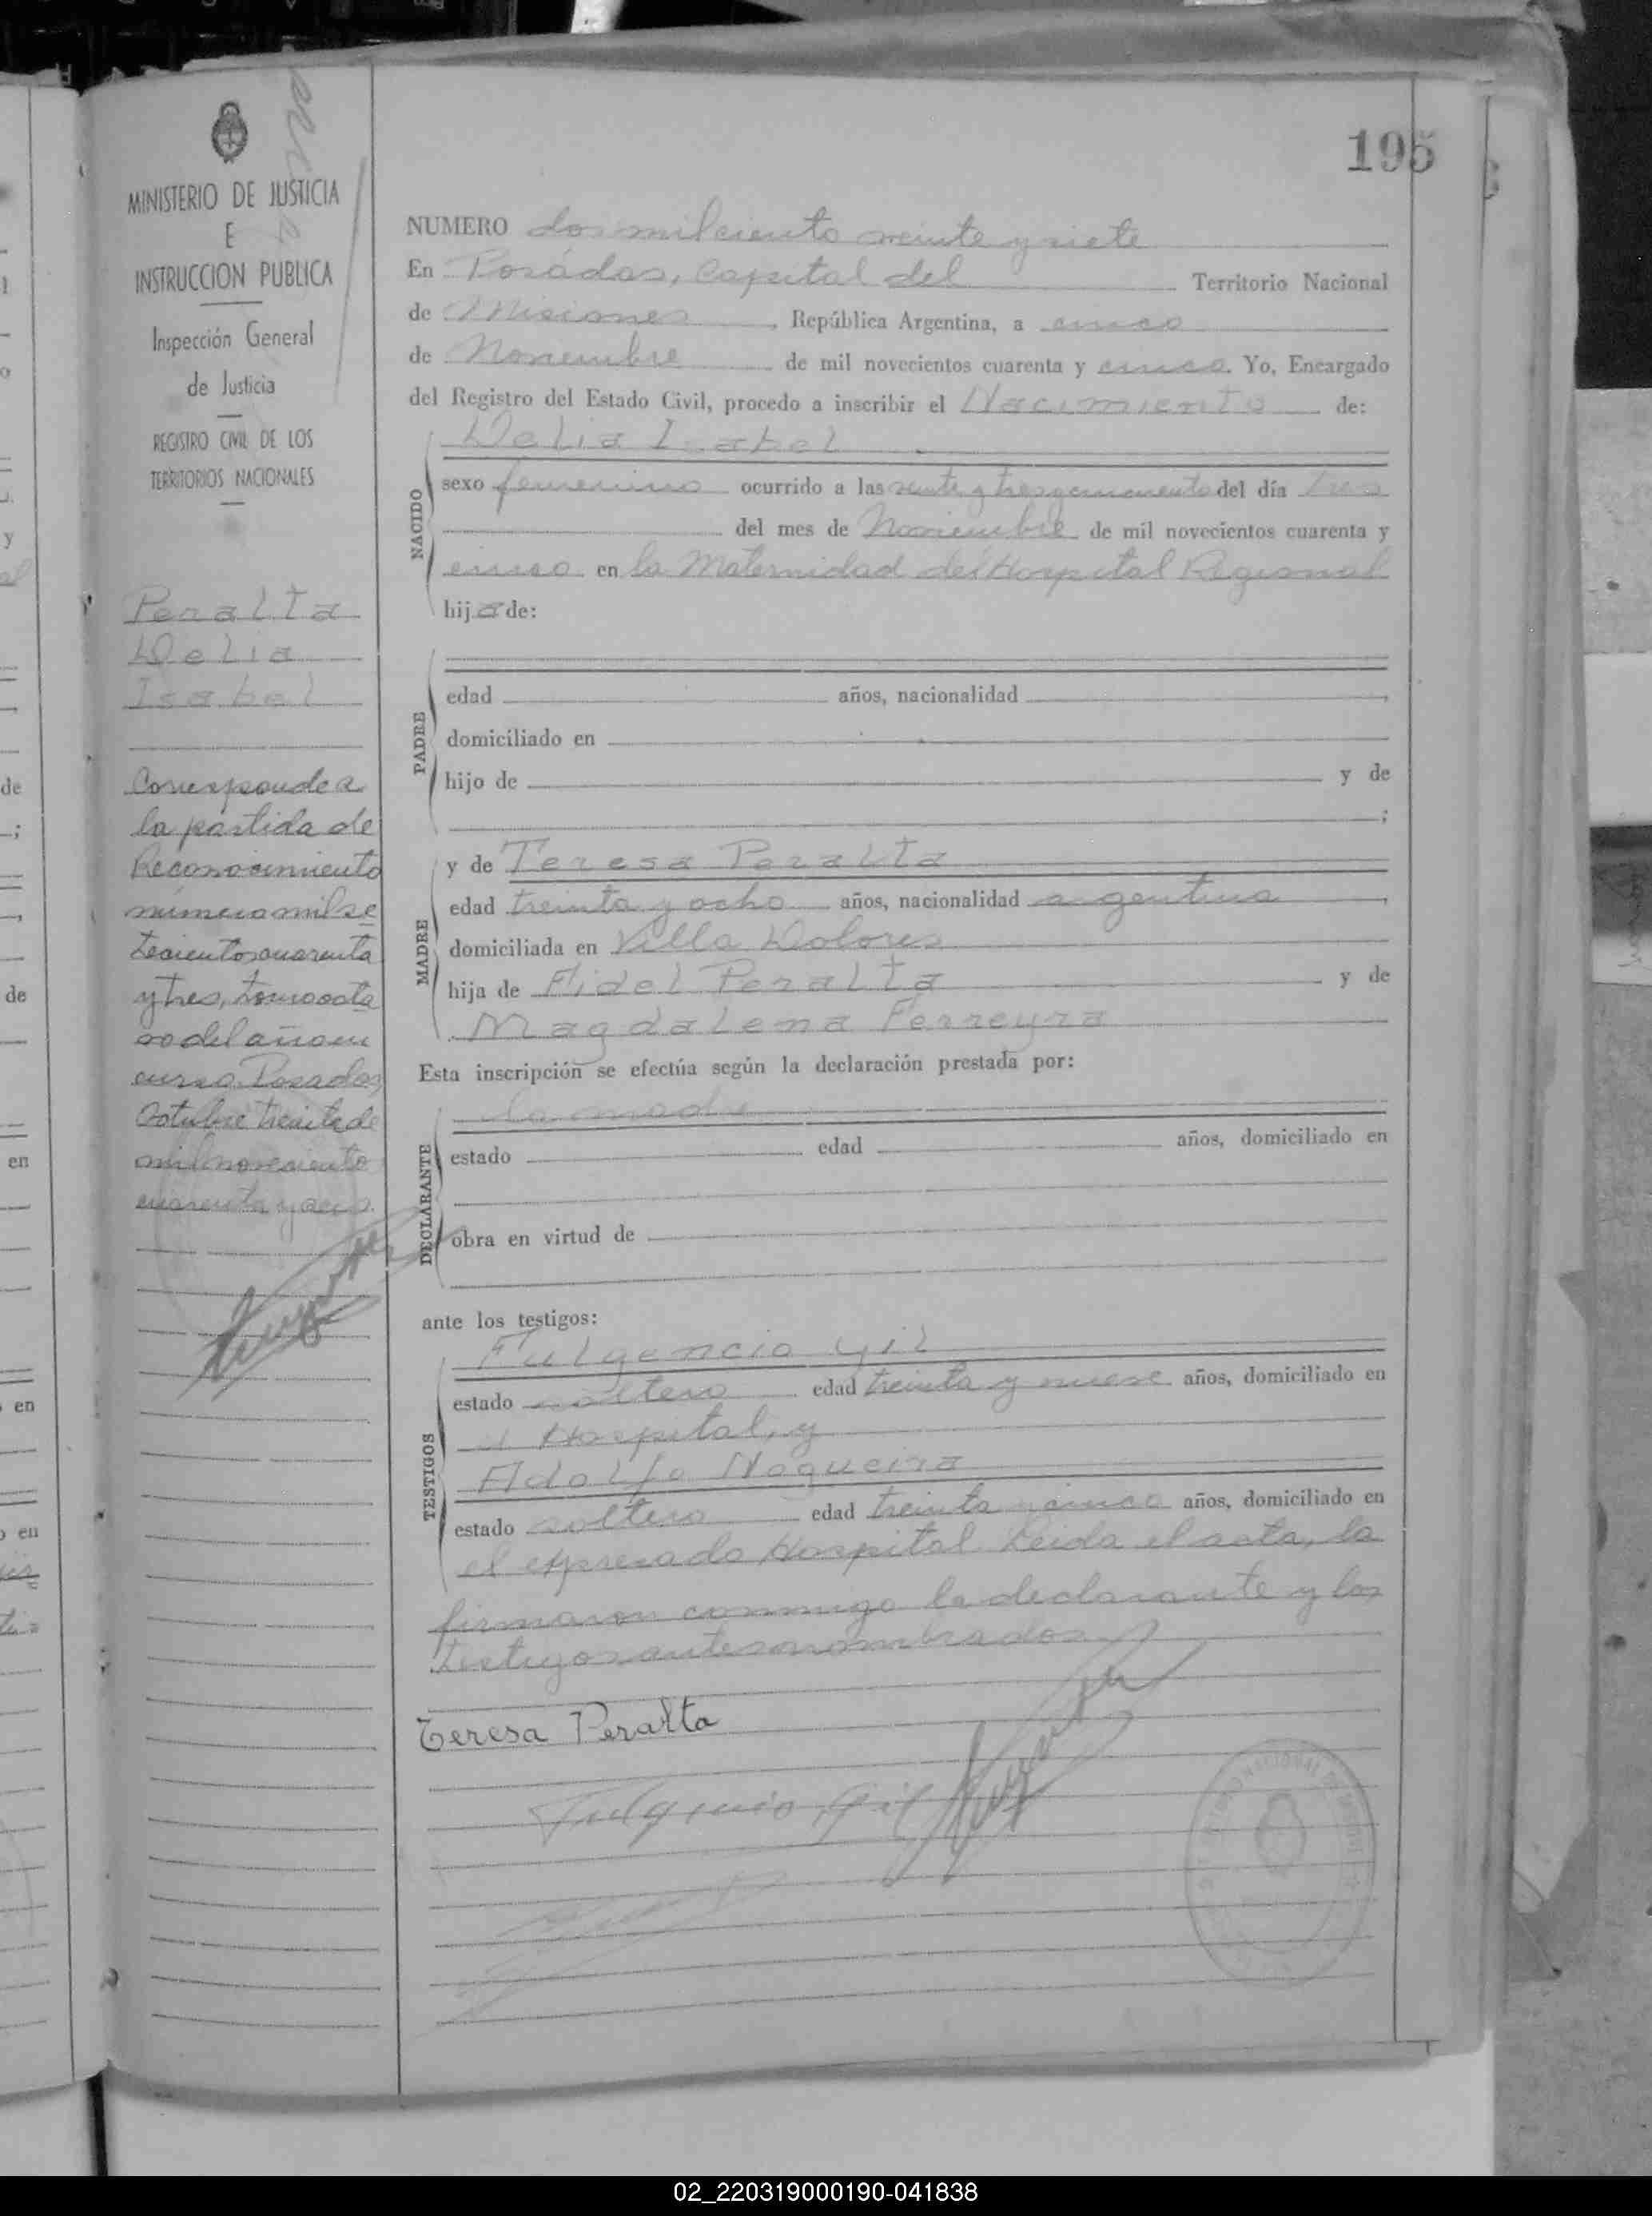 195
MINISTERIO DE JUSTICIA
E
INSTRUCCION PUBLICA
Inspección General
de Justicia
REGISTRO CIVIL DE LOS
TERRITORIOS NACIONALES
Peralta
Delia
Isabel
Corresponde a
la partida de
Reconocimiento
número mil se
tecientos cuarenta
y tres, tomo octa
vo del año en
curso. Posadas,
Octubre treinta de
mil novecientos
cuarenta y
NUMERO dos mil ciento veinte y siete
En Posadas, Capital del Territorio Nacional
de Misiones, República Argentina, a cinco
de Noviembre de mil novecientos cuarenta y cinco. Yo, Encargado
del Registro del Estado Civil, procedo a inscribir el Nacimiento de:
Delia Isabel
NACIDO
sexo femenino ocurrido a las veinte y tres y cincuenta del día tres
del mes de Noviembre de mil novecientos cuarenta y
cinco en la Maternidad del Hospital Regional
hija de:
PADRE
edad años, nacionalidad ,
domiciliado en
hijo de y de
;
MADRE
y de Teresa Peralta
edad treinta y ocho años, nacionalidad argentina ,
domiciliada en Villa Dolores
hija de Fidel Peralta y de
Magdalena Ferreyra
Esta inscripción se efectúa según la declaración prestada por:
DECLARANTE
la madre
estado edad años, domiciliado en
obra en virtud de
ante los testigos:
TESTIGOS
Fulgencio Gil
estado soltero edad treinta y nueve años, domiciliado en
el Hospital, y
Adolfo Nogueira
estado soltero edad treinta y cinco años, domiciliado en
el expresado Hospital. Leida el acta, la
firmaron conmigo la declarante y los
testigos antes nombrados.
Teresa Peralta
Fulgencio Gil
02_220319000190-041838